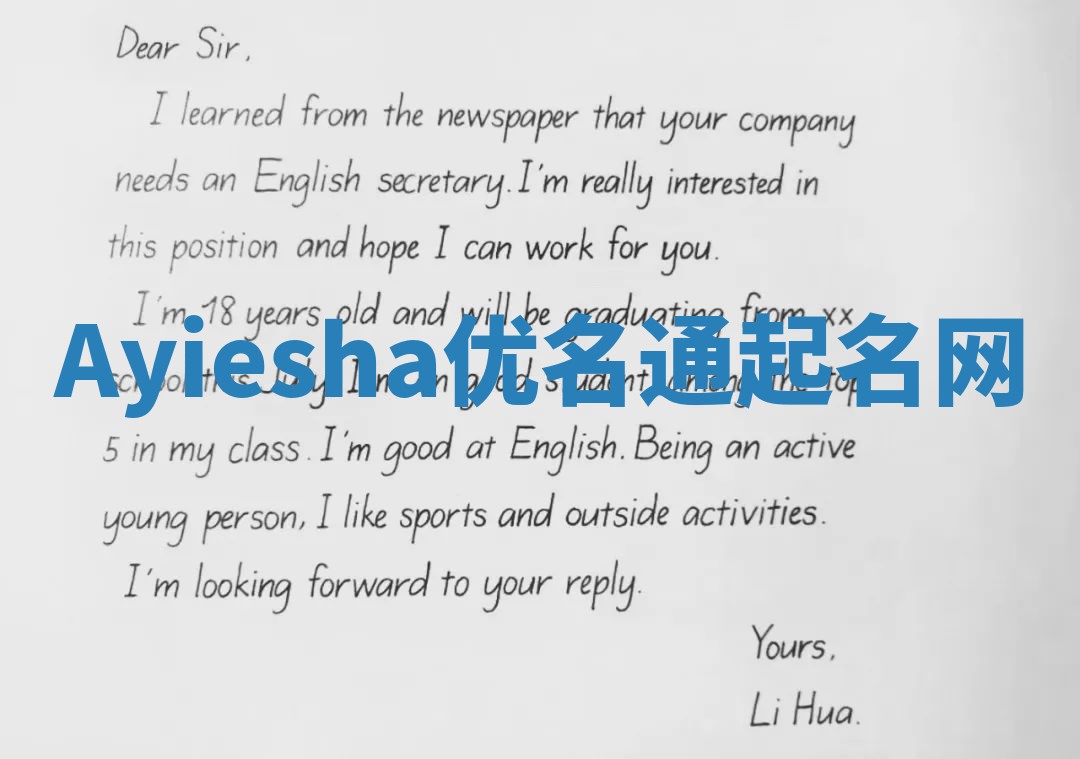 Dear Sir,
I learned from the newspaper that your company
needs an English secretary. I'm really interested in
this position and hope I can work for you.
I'm 18 years old and will be graduating from xx
Ayiesha优名通起名网
school this July. I'm a good student, among the top
5 in my class. I'm good at English. Being an active
young person, I like sports and outside activities.
I'm looking forward to your reply.
Yours,
Li Hua.